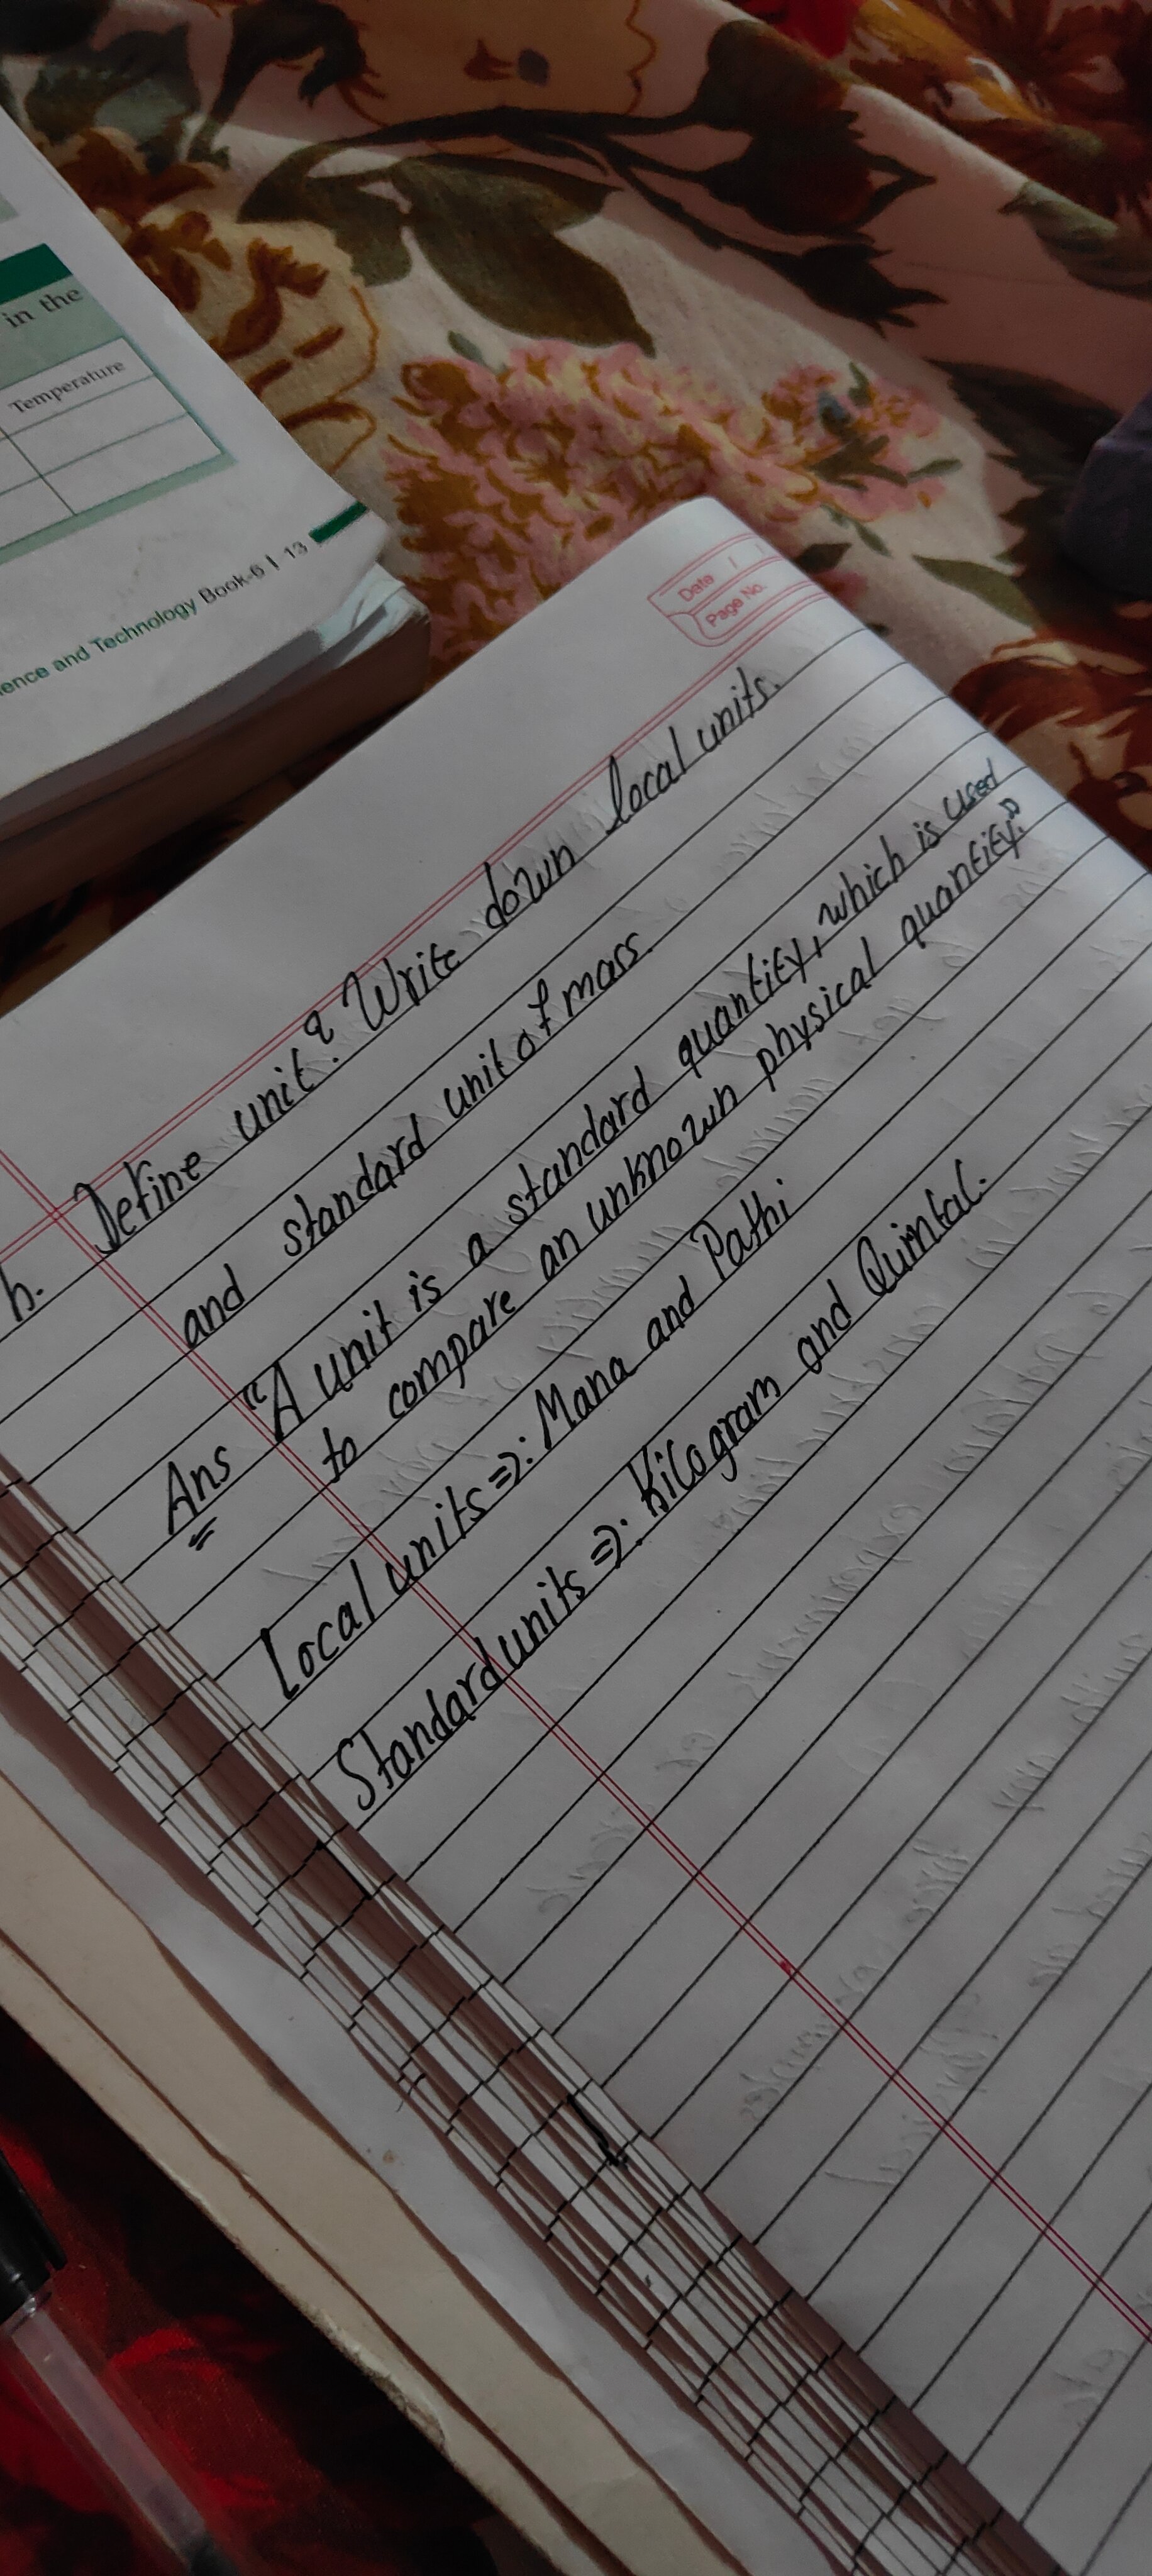 in the
Temperature
ience and Technology Book-6 | 13
Date / /
Page No.
h. Define unit? Write down local units.
and standard unit of mass.
Ans "A unit is a standard quantity, which is used
to compare an unknown physical quantity."
Local units ⇒: Mana and Pathi
Standard units ⇒: Kilogram and Quintal.